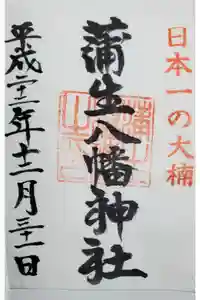 日本一の大楠
蒲生八幡神社
平成二十二年十二月三十一日